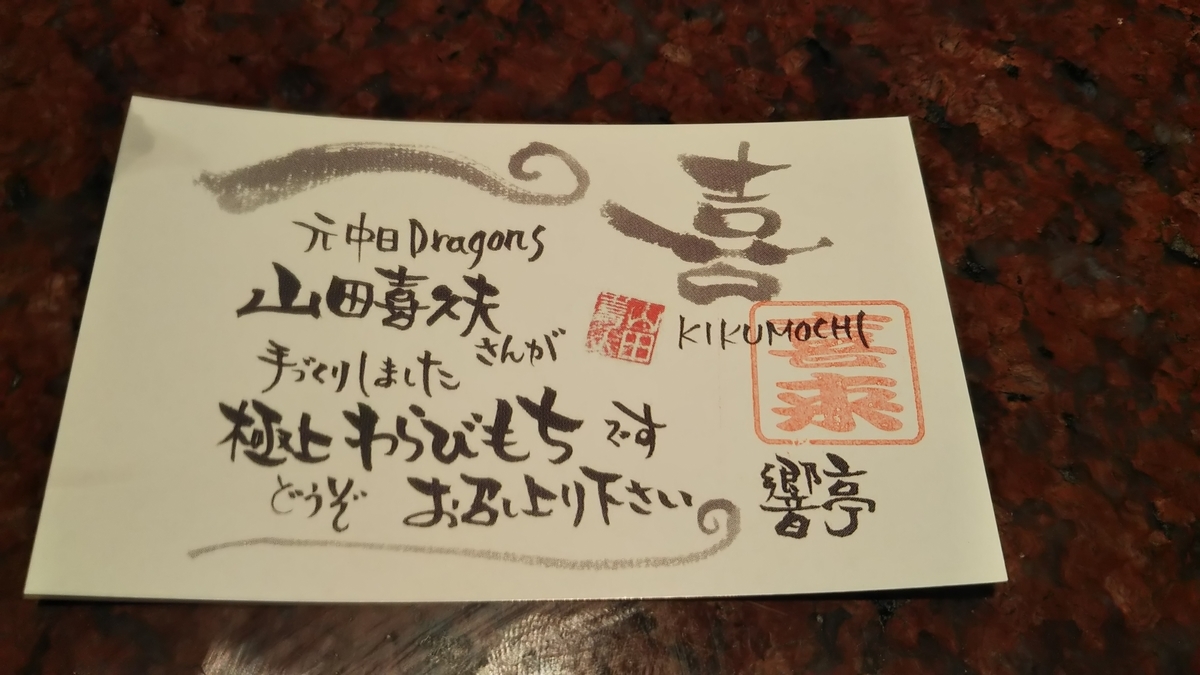 元中日Dragons
山田喜久夫
さんが
手づくりしました
極上わらびもちです
どうぞ お召し上り下さい
喜
山田
喜久夫
KIKUMOCHI
喜来
響亭